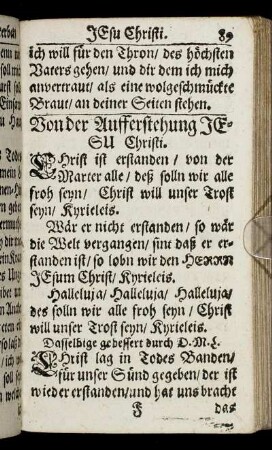 JEsu Christi. 89
ich will für den Thron/ des höchsten
Vaters gehen/ und dir dem ich mich
anvertraut/ als eine wolgeschmückte
Braut/ an deiner Seiten stehen.
Von der Aufferstehung JE-
SU Christi.
CHrist ist erstanden/ von der
Marter alle/ deß solln wir alle
froh seyn/ Christ will unser Trost
seyn/ Kyrieleis.
Wär er nicht erstanden/ so wär
die Welt vergangen/ sint daß er er-
standen ist/ so lobn wir den HERRN
JEsum Christ/ Kyrieleis.
Halleluja/ Halleluja/ Halleluja/
des solln wir alle froh seyn/ Christ
will unser Trost seyn/ Kyrieleis.
Dasselbige gebessert durch D. M. L.
CHrist lag in Todes Banden/
für unser Sünd gegeben/ der ist
wieder erstanden/ und hat uns bracht
F das